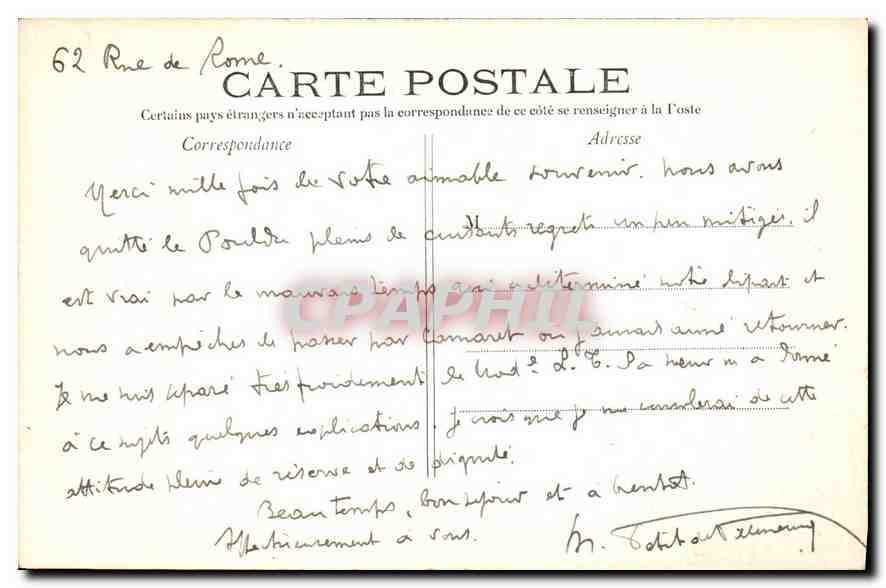 62 Rue de Rome.
CARTE POSTALE
Certains pays étrangers n'acceptant pas la correspondance de ce côté se renseigner à la Poste
Correspondance
Adresse
Merci mille fois de votre aimable souvenir. Nous avons
M
quitté le Pouldu pleins de cuisants regrets un peu mitigés, il
est vrai par le mauvais temps qui a déterminé notre départ et
CPAPHIL
nous a empêchés de passer par Camaret où j'aurais aimé retourner.
Je me suis séparé très froidement de Mad.e L. T. Sa sœur m'a donné
à ce sujet quelques explications. Je crois que je me consolerai de cette
attitude pleine de réserve et de dignité.
Beau temps, bon séjour et à bientôt.
Affectueusement à vous.
M. Petit de